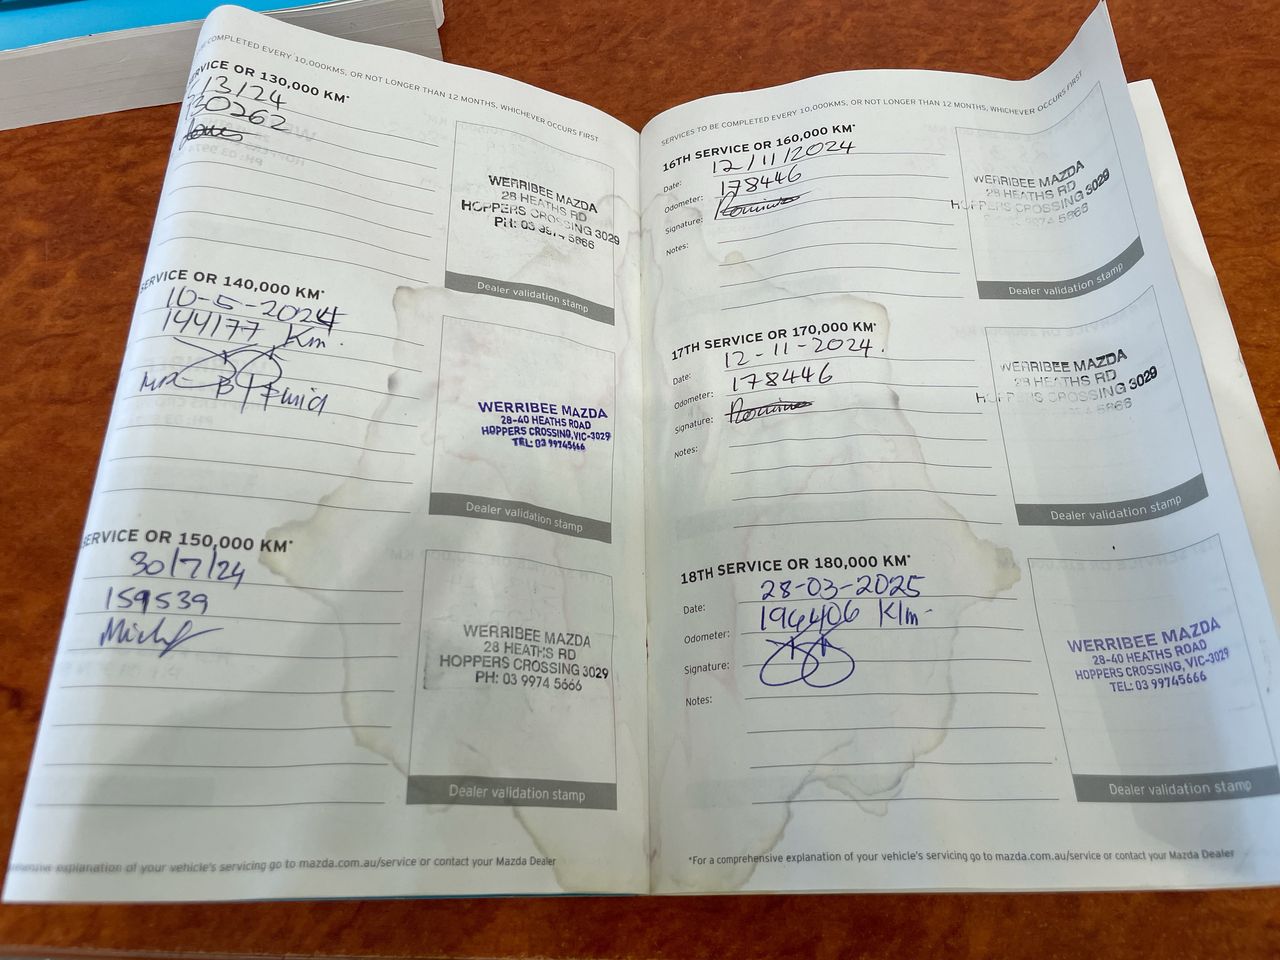 COMPLETED EVERY 10,000KMS, OR NOT LONGER THAN 12 MONTHS, WHICHEVER OCCURS FIRST
SERVICE OR 130,000 KM*
/3/24
130262
WERRIBEE MAZDA
28 HEATHS RD
HOPPERS CROSSING 3029
PH: 03 9974 5666
Dealer validation stamp
SERVICE OR 140,000 KM*
10-5-2024
144177 Km.
WERRIBEE MAZDA
28-40 HEATHS ROAD
HOPPERS CROSSING, VIC-3029
TEL: 03 99745666
Dealer validation stamp
SERVICE OR 150,000 KM*
30/7/24
159539
WERRIBEE MAZDA
28 HEATHS RD
HOPPERS CROSSING 3029
PH: 03 9974 5666
Dealer validation stamp
explanation of your vehicle's servicing go to mazda.com.au/service or contact your Mazda Dealer
SERVICES TO BE COMPLETED EVERY 10,000KMS, OR NOT LONGER THAN 12 MONTHS, WHICHEVER OCCURS FIRST
16TH SERVICE OR 160,000 KM*
Date: 12/11/2024
Odometer: 178446
Signature:
Notes:
WERRIBEE MAZDA
28 HEATHS RD
HOPPERS CROSSING 3029
9974 5666
Dealer validation stamp
17TH SERVICE OR 170,000 KM*
Date: 12-11-2024.
Odometer: 178446
Signature:
Notes:
WERRIBEE MAZDA
28 HEATHS RD
HOPPERS CROSSING 3029
5666
Dealer validation stamp
18TH SERVICE OR 180,000 KM*
Date: 28-03-2025
Odometer: 194406 Klm-
Signature:
Notes:
WERRIBEE MAZDA
28-40 HEATHS ROAD
HOPPERS CROSSING, VIC-3029
TEL: 03 99745666
Dealer validation stamp
*For a comprehensive explanation of your vehicle's servicing go to mazda.com.au/service or contact your Mazda Dealer